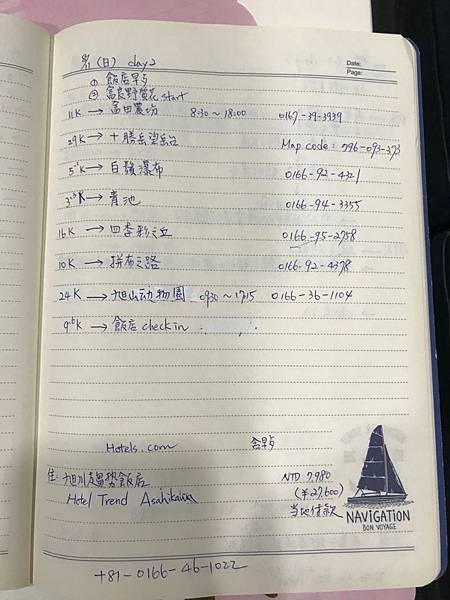 (日) day2
Date:
Page:
① 飯店早歺
② 富良野賞花 start
11K → 富田農場 8:30～18:00 0167-39-3939
29K → 十勝岳望岳台 Map code: 796-093-373
5.1K → 白鬚瀑布 0166-92-4321
K → 青池 0166-94-3355
16K → 四季彩之丘 0166-95-2758
10K → 拼布之路 0166-92-4378
24K → 旭山动物園 0930～1715 0166-36-1104
K → 飯店 check in
Hotels.com 含早歺
住: 旭川趨勢飯店 NTD 7,980
Hotel Trend Asahikawa (¥27,600)
当地付款
NAVIGATION
BON VOYAGE
+81-0166-46-1022